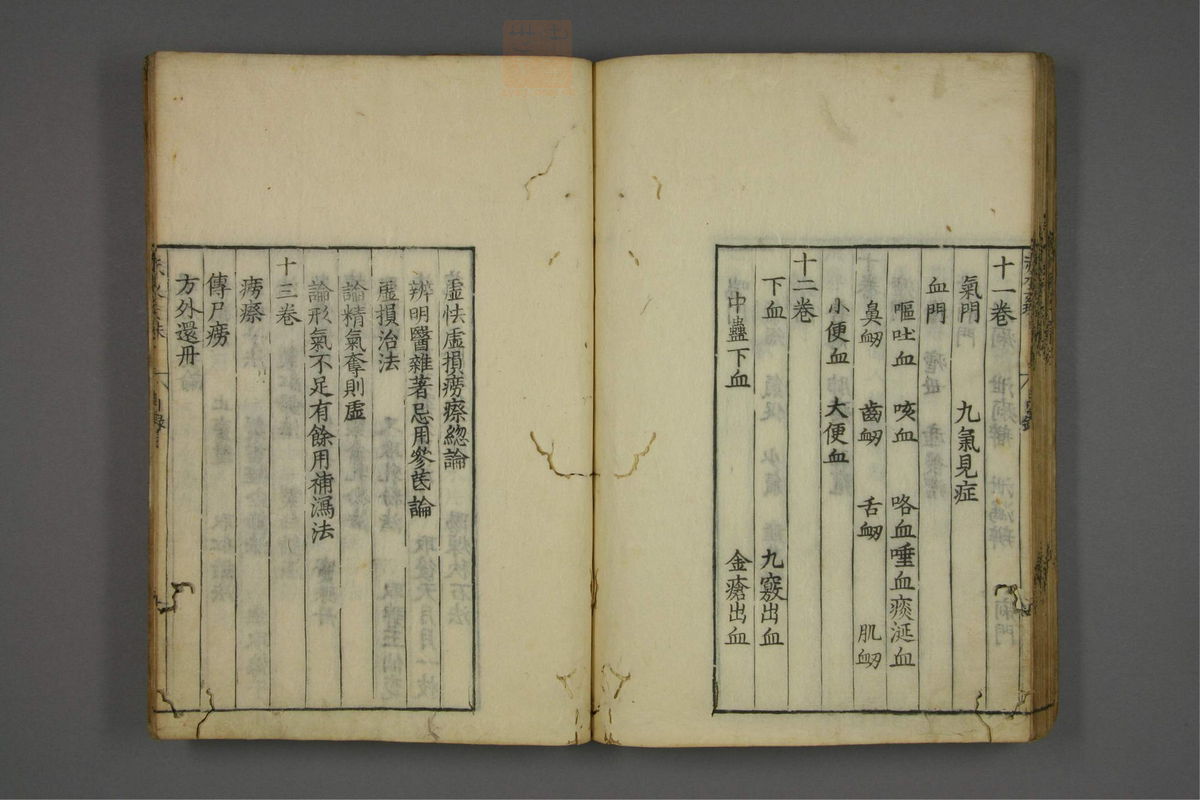 十一卷
氣門 九氣見症
血門
嘔吐血 咳血 咯血唾血痰涎血
鼻衂 齒衂 舌衂 肌衂
小便血 大便血
十二卷
下血 九竅出血
中蠱下血 金瘡出血
虛怯虛損癆瘵緫論
辨明醫雜著忌用參芪論
虛損治法
論精氣奪則虛
論形氣不足有餘用補瀉法
十三卷
癆瘵
傳尸癆
方外還丹